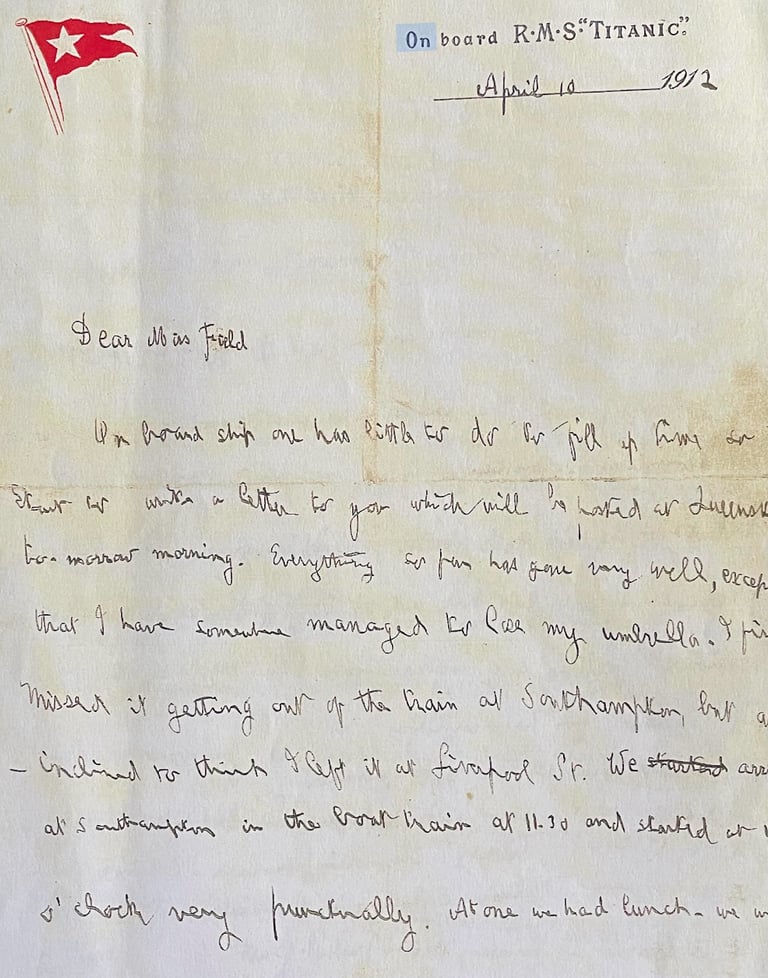 On board R·M·S· "TITANIC".
April 10 1912
Dear Miss Field
On board ship one has little to do to fill up time so
start to write a letter to you which will be posted at Queens
to-morrow morning. Everything so far has gone very well, excep
that I have somehow managed to lose my umbrella. I fir
missed it getting out of the train at Southampton, but a
inclined to think I left it at Liverpool St. We started arr
at Southampton in the boat train at 11.30 and started at 1
o' clock very punctually. At one we had lunch - we w